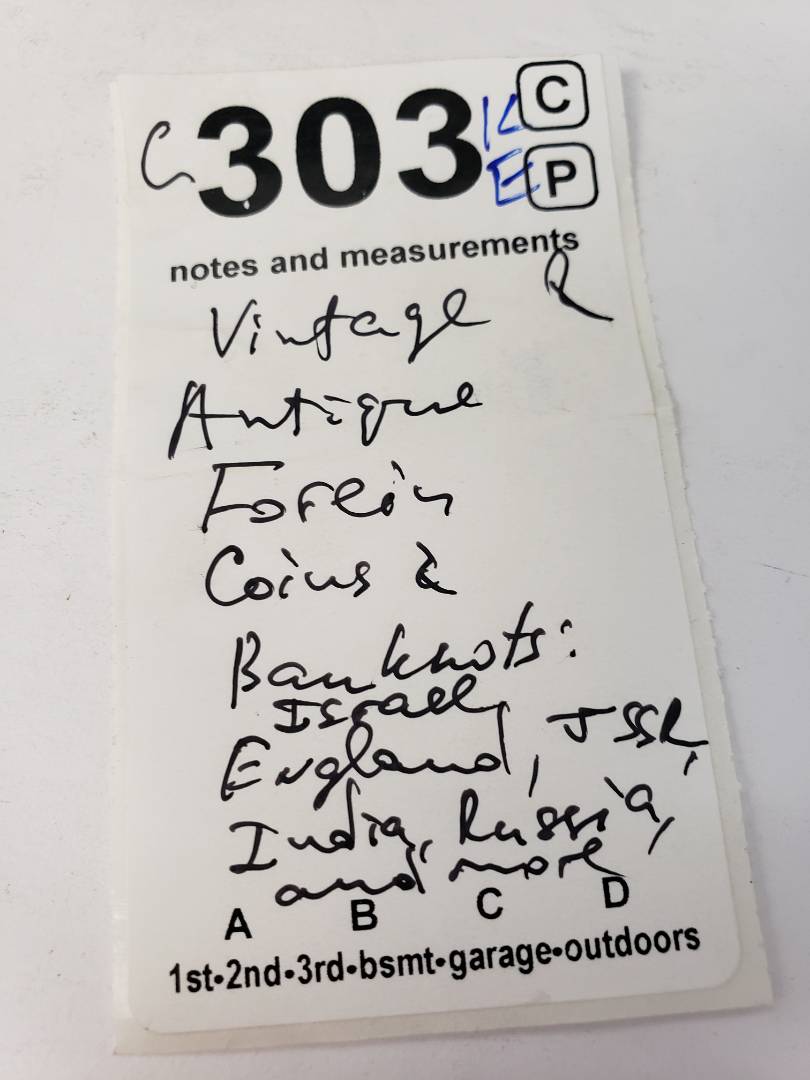 C 303 K C
E P
notes and measurements
R
Vintage
Antique
Forein
Coins &
Banknots:
Israel,
England, JSSR,
India, Russia,
and more
A B C D
1st•2nd•3rd•bsmt•garage•outdoors